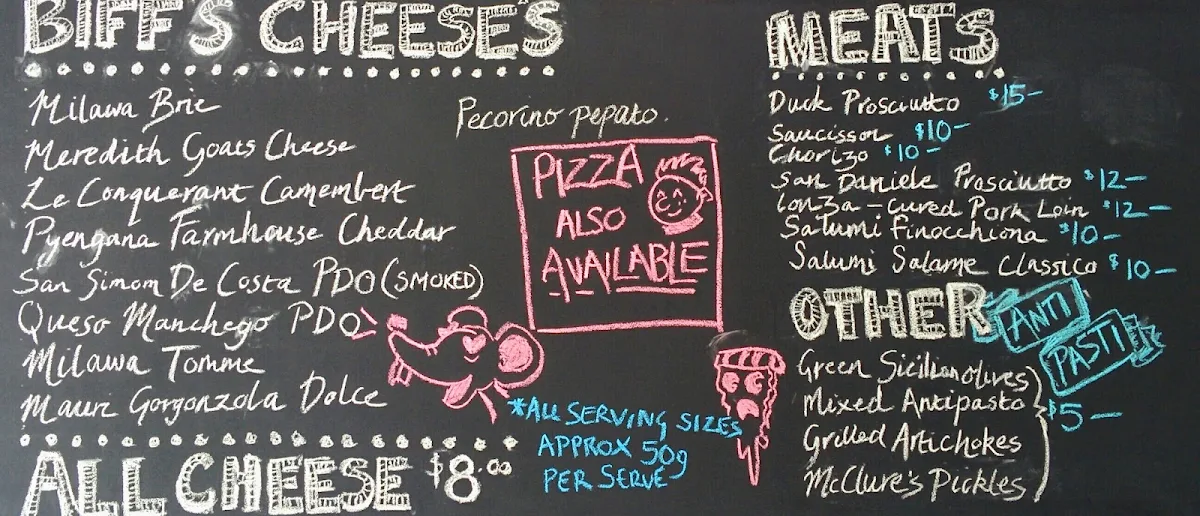 BIFF'S CHEESE'S
Milawa Brie
Meredith Goats Cheese
Le Conquerant Camembert
Pyengana Farmhouse Cheddar
San Simom De Costa PDO (SMOKED)
Queso Manchego PDO
Milawa Tomme
Mauri Gorgonzola Dolce
ALL CHEESE $8.00
Pecorino pepato.
PIZZA
ALSO
AVAILABLE
*ALL SERVING SIZES
APPROX 50g
PER SERVE
MEATS
Duck Prosciutto $15-
Saucisson $10-
Chorizo $10-
San Daniele Prosciutto $12-
Lonza - Cured Pork Loin $12-
Salumi Finocchiona $10-
Salumi Salame Classico $10-
OTHER
ANTI
PASTI
Green Sicilian Olives
Mixed Antipasto $5-
Grilled Artichokes
McClure's Pickles